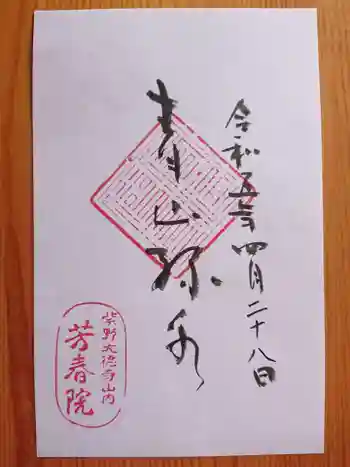 令和五年四月二十八日
青山弥永
紫野大徳寺山内
芳春院